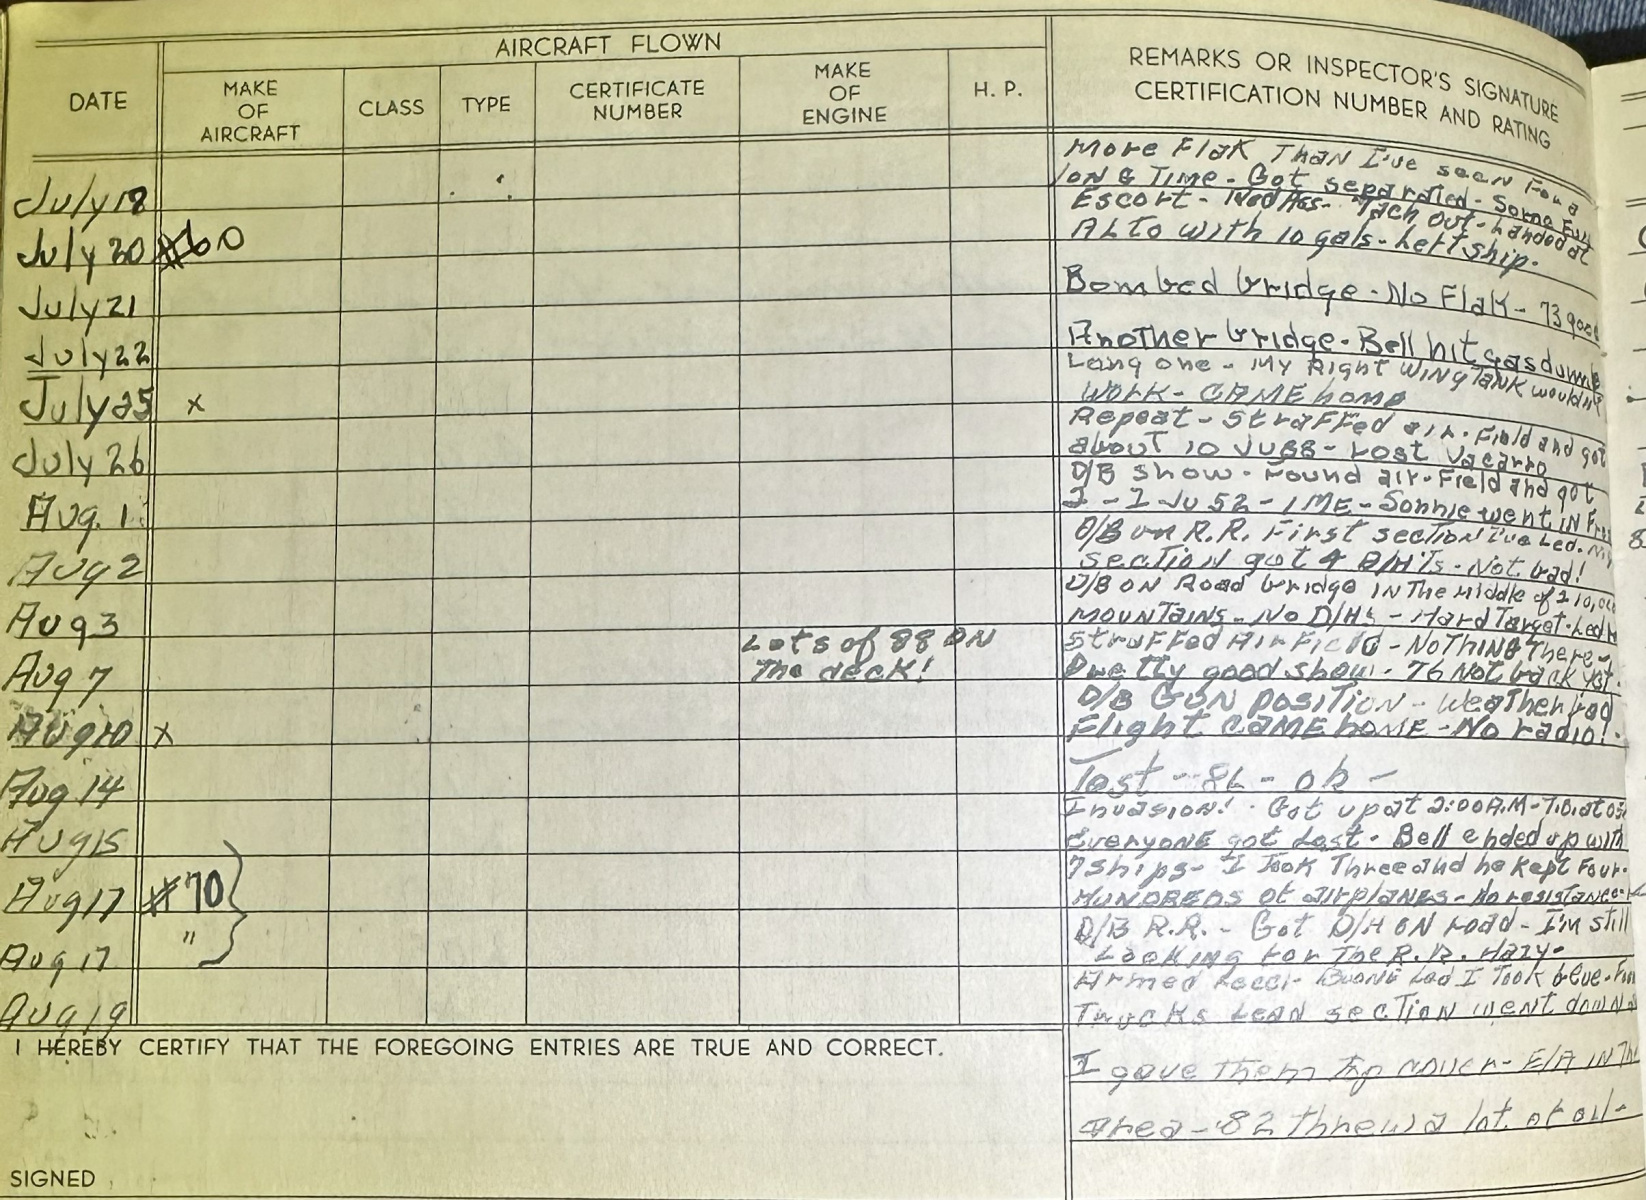 AIRCRAFT FLOWN
DATE
MAKE OF AIRCRAFT
CLASS
TYPE
CERTIFICATE NUMBER
MAKE OF ENGINE
H. P.
REMARKS OR INSPECTOR'S SIGNATURE
CERTIFICATION NUMBER AND RATING
July 18
More Flak Than I've seen For a
long Time - Got separated - Some Fun
July 20 #60
Escort - Tach out - Landed at
ALTO with 10 gals - Left ship.
July 21
Bombed bridge - No Flak - 73 good
July 22
Another bridge - Bell hit gas dump
July 25 x
Long one - My Right Wing Tank wouldn't
Work - CAME home
July 26
Repeat - Straffed air-Field and got
about 10 JU88 - Lost Vacarro
Aug. 1
D/B show - Found air-Field and got
2 - 1 JU 52 - 1 ME - Sonnie went IN
Aug 2
D/B on R.R. First section I've Led. My
section got 4 D/H'Ts - Not bad!
Aug 3
D/B ON Road bridge IN The Middle of
MOUNTAINS - No D/Hs - Hard Target -
Aug 7
Lots of 88 ON
The deck!
Straffed Air Field - NoTHING There -
Pretty good show - 76 Not back yet.
Aug 10 x
D/B GUN position - Weather bad
Flight CAME home - No radio!
Aug 14
Test - 86 - ok -
Aug 15
Invasion! - Got up at 2:00 A.M -
Everyone got Lost - Bell ended up with
Aug 17 #70
7 ships - I Took Three and he kept Four.
HUNDREDS of airplanes - No resistance -
Aug 17 "
D/B R.R. - Got D/H ON road - I'm still
Looking For The R.R. Hazy -
Aug 19
Armed Recci - Led I Took blue -
Trucks LEAD section went down
I HEREBY CERTIFY THAT THE FOREGOING ENTRIES ARE TRUE AND CORRECT.
I gave Them Top cover - E/A IN The
area - 82 threw a lot of oil -
SIGNED